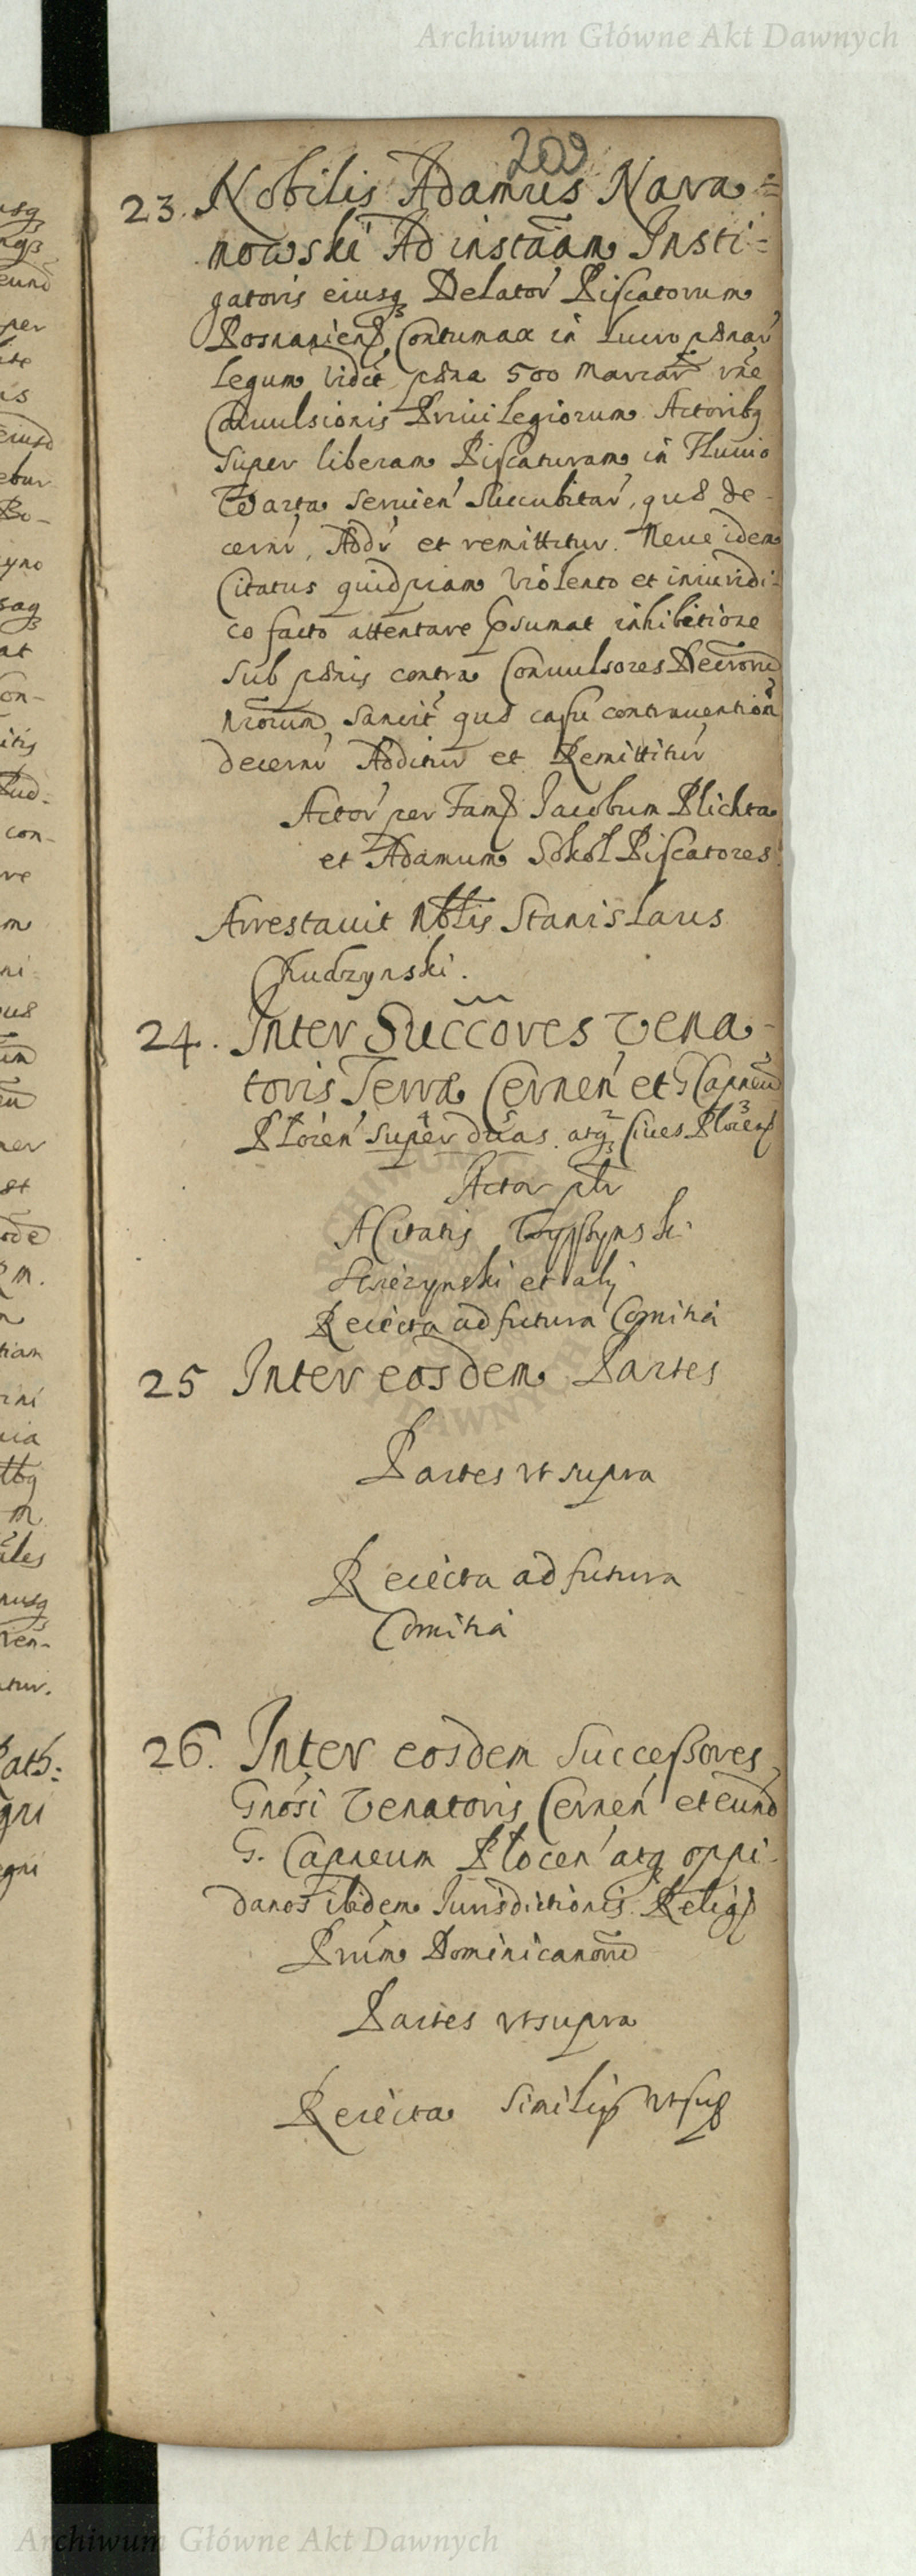 Archiwum Główne Akt Dawnych
209
23. Nobilis Adamus Nara=
mowski Ad instãam Insti=
gatoris eiusq Delator Piscatorum
Posnanien Contumax in lucro pænar
Legum videt pæna 500 Marcar rñe
Convulsionis Privilegiorum Actoribq
Super liberam Piscaturam in Fluvio
Warta servien Succubitar, quæ de-
cerni, Addi et remittitur. Neve idem
Citatus quidpiam violento et iniuridi-
co facto attentare præsumat inhibitione
sub pænis contra Convulsores Decrorũ
Nrõrum, sancit quæ casu contravention
decerni Additur et Remittitur
Actor per Fam Jacobum Plichta
et Adamum Sokoł Piscatores
Arrestavit Nblis Stanislaus
Chudzynski.
24. Inter Succores Vena-
toris Terræ Cernen et G Capneũ
Plocen super duas atq Cives Plocen
Actor ptr
A Citatis
et alij
Reiecta ad futura Comitia
25 Inter eosdem Partes
Partes ut supra
Reiecta ad futura
Comitia
26. Inter eosdem Successores
Gnosi Venatoris Cernen et eund
G. Capneum Plocen atq oppi-
danos ibidem Jurisdictionis Relig
Prum Dominicanorũ
Partes ut supra
Reiecta similis ut sup
Archiwum Główne Akt Dawnych